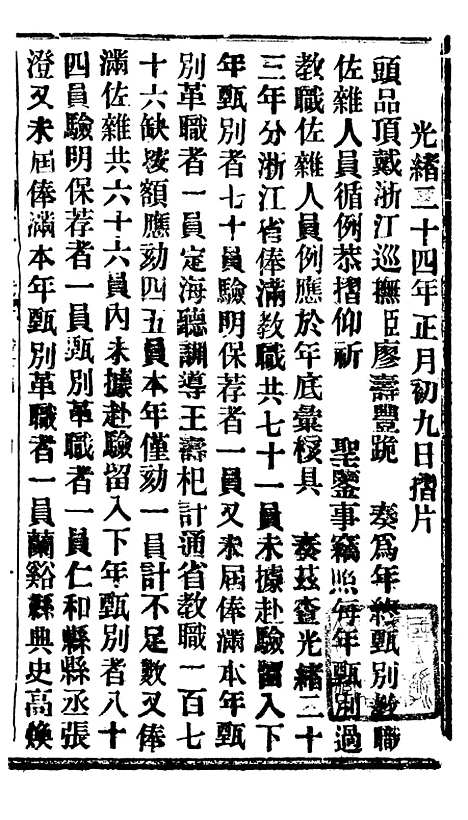 光緒二十四年正月初九日摺片
頭品頂戴浙江巡撫臣廖壽豐跪 奏為年終甄別教職
佐雜人員循例恭摺仰祈 聖鑒事竊照每年甄別過
教職佐雜人員例應於年底彙核具 奏茲查光緒二十
三年分浙江省俸滿教職共七十一員未據赴驗留入下
年甄別者七十員驗明保荐者一員又未屆俸滿本年甄
別革職者一員定海聽訓導王壽杞計通省教職一百七
十六缺按額應劾四五員本年僅劾一員計不足數又俸
滿佐雜共六十六員內未據赴驗留入下年甄別者八十
四員驗明保荐者一員甄別革職者一員仁和縣縣丞張
澄又未屆俸滿本年甄別革職者一員蘭谿縣典史高煥